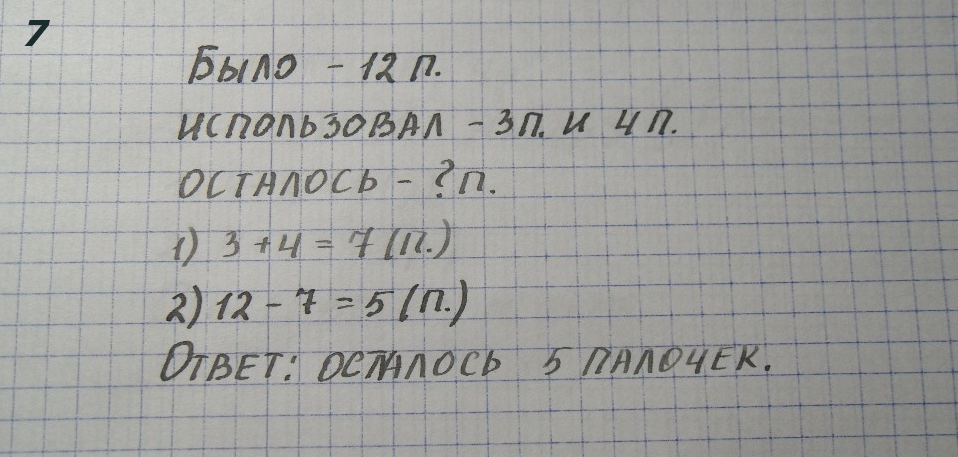 7
Было - 12 п.
использовал - 3 п. и 4 п.
осталось - ? п.
1) 3 + 4 = 7 (п.)
2) 12 - 7 = 5 (п.)
Ответ: осталось 5 палочек.